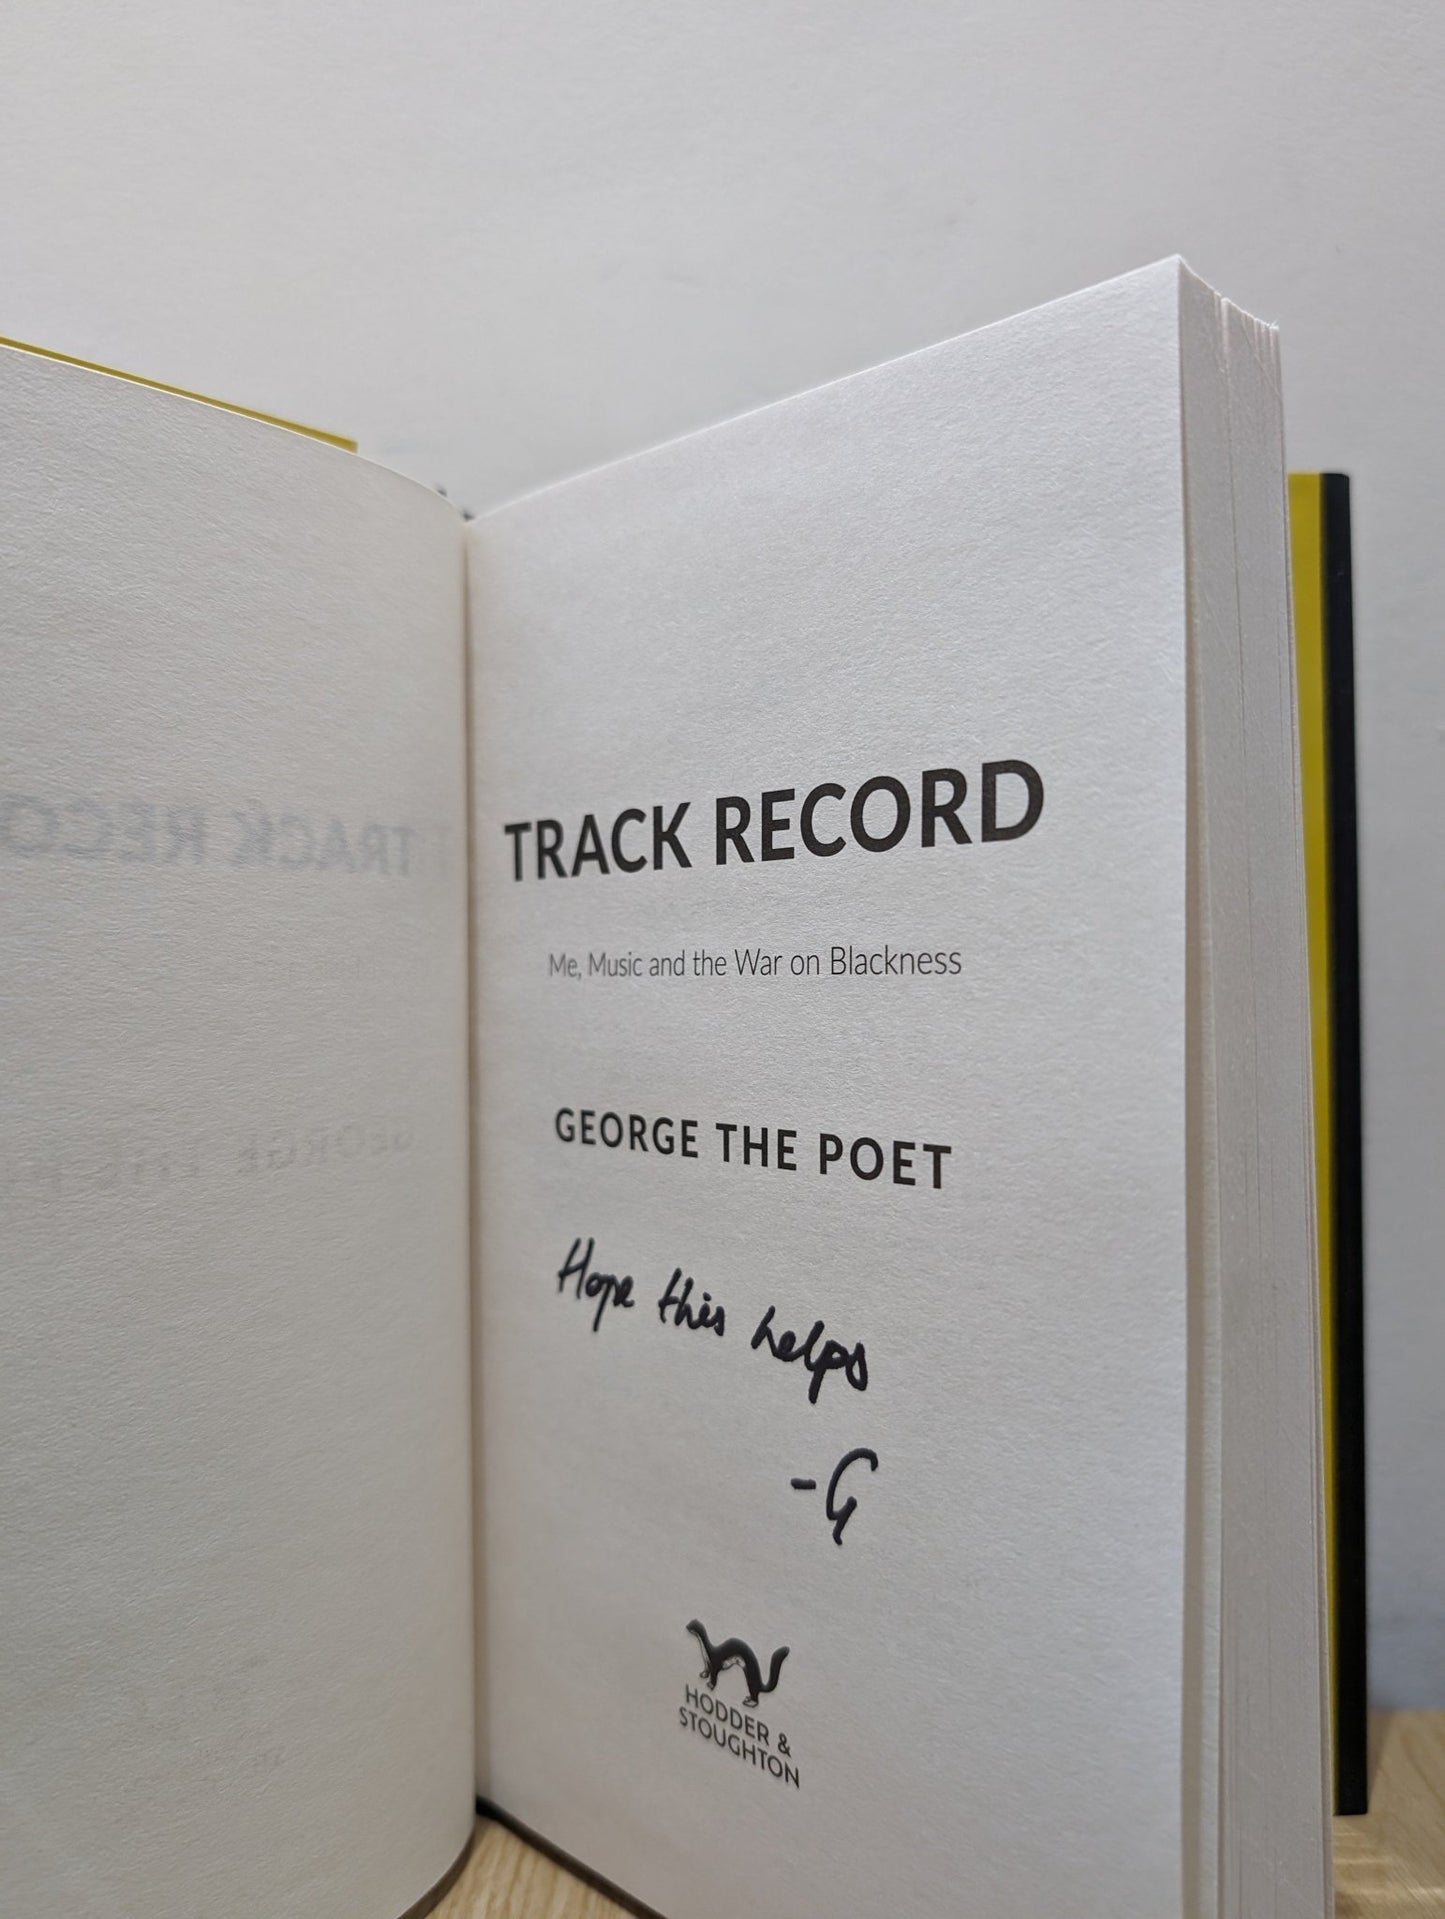 TRACK RECORD
Me, Music and the War on Blackness
GEORGE THE POET
Hope this helps
-G
HODDER &
STOUGHTON